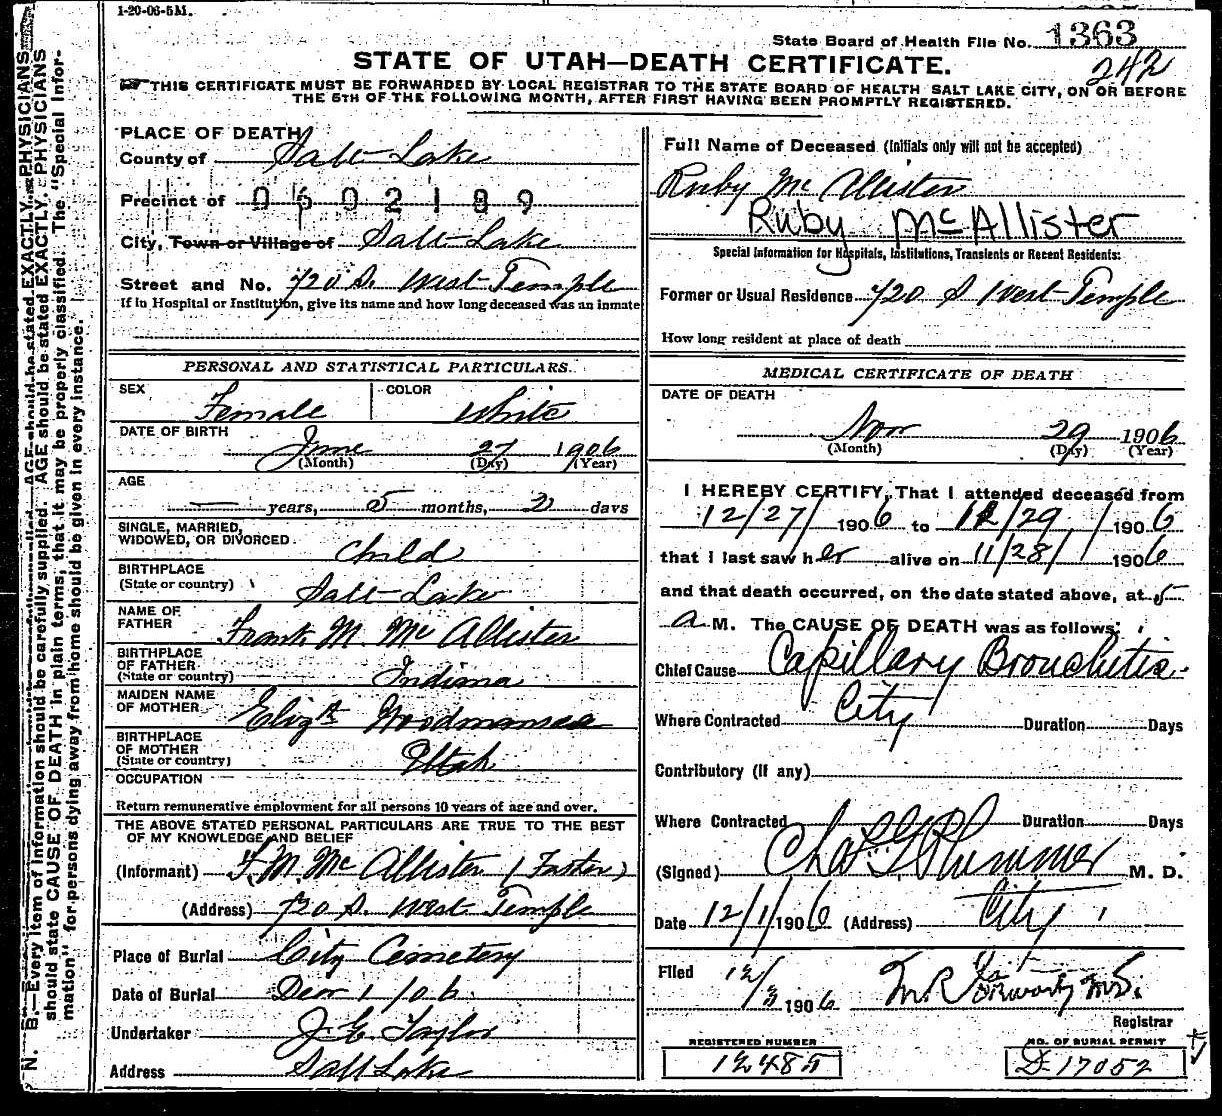 1-20-06-5M.
State Board of Health File No. 1363
242
STATE OF UTAH—DEATH CERTIFICATE.
THIS CERTIFICATE MUST BE FORWARDED BY LOCAL REGISTRAR TO THE STATE BOARD OF HEALTH SALT LAKE CITY, ON OR BEFORE
THE 5TH OF THE FOLLOWING MONTH, AFTER FIRST HAVING BEEN PROMPTLY REGISTERED.
N. B.—Every item of information should be carefully supplied. AGE should be stated EXACTLY. PHYSICIANS
should state CAUSE OF DEATH in plain terms, that it may be properly classified. The "Special Infor-
mation" for persons dying away from home should be given in every instance.
PLACE OF DEATH
County of Salt Lake
Precinct of 0602189
City, Town or Village of Salt Lake
Street and No. 720 S. West Temple
If in Hospital or Institution, give its name and how long deceased was an inmate
PERSONAL AND STATISTICAL PARTICULARS.
SEX Female COLOR White
DATE OF BIRTH June 27 1906
(Month) (Day) (Year)
AGE — years, 5 months, 2 days
SINGLE, MARRIED,
WIDOWED, OR DIVORCED Child
BIRTHPLACE
(State or country) Salt Lake
NAME OF
FATHER Frank M. McAllister
BIRTHPLACE
OF FATHER
(State or country) Indiana
MAIDEN NAME
OF MOTHER Elizth Woodmansee
BIRTHPLACE
OF MOTHER
(State or country) Utah
OCCUPATION
Return remunerative employment for all persons 10 years of age and over.
THE ABOVE STATED PERSONAL PARTICULARS ARE TRUE TO THE BEST
OF MY KNOWLEDGE AND BELIEF
(Informant) F. M. McAllister (Father)
(Address) 720 S. West Temple
Place of Burial City Cemetery
Date of Burial Decr 1/06.
Undertaker J. E. Taylor
Address Salt Lake
Full Name of Deceased (Initials only will not be accepted)
Ruby McAllister
Ruby McAllister
Special Information for Hospitals, Institutions, Transients or Recent Residents:
Former or Usual Residence 720 S West Temple
How long resident at place of death
MEDICAL CERTIFICATE OF DEATH
DATE OF DEATH
Nov 29 1906
(Month) (Day) (Year)
I HEREBY CERTIFY, That I attended deceased from
12/27/ 1906 to 12/29/ 1906
that I last saw her alive on 11/28/ 1906
and that death occurred, on the date stated above, at 5
a M. The CAUSE OF DEATH was as follows:
Chief Cause Capillary Bronchitis.
Where Contracted City Duration Days
Contributory (If any)
Where Contracted Duration Days
(Signed) Chas G Plummer M. D.
Date 12/1/1906 (Address) City
Filed 12/3 1906 M.D.
Registrar
REGISTERED NUMBER
12485
NO. OF BURIAL PERMIT
D-17052